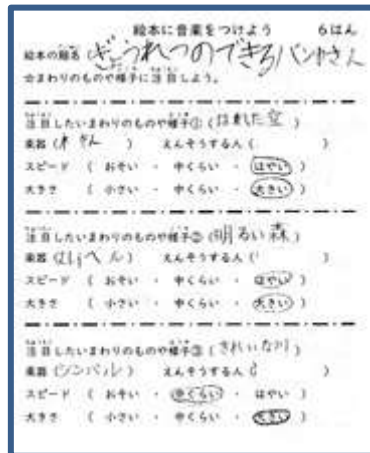 絵本に音楽をつけよう 6はん
絵本の題名 (ぎょうれつのできるパンやさん
☆まわりのものや様子に注目しよう。
注目したいまわりのものや様子① (はれた空 )
楽器 (木きん ) えんそうする人 ( )
スピード ( おそい ・ 中くらい ・ はやい )
大きさ ( 小さい ・ 中くらい ・ 大きい )
注目したいまわりのものや様子② (明るい森 )
楽器 ( ベル ) えんそうする人 ( )
スピード ( おそい ・ 中くらい ・ はやい )
大きさ ( 小さい ・ 中くらい ・ 大きい )
注目したいまわりのものや様子③ (きれいな川 )
楽器 (シンバル ) えんそうする人 ( )
スピード ( おそい ・ 中くらい ・ はやい )
大きさ ( 小さい ・ 中くらい ・ 大きい )